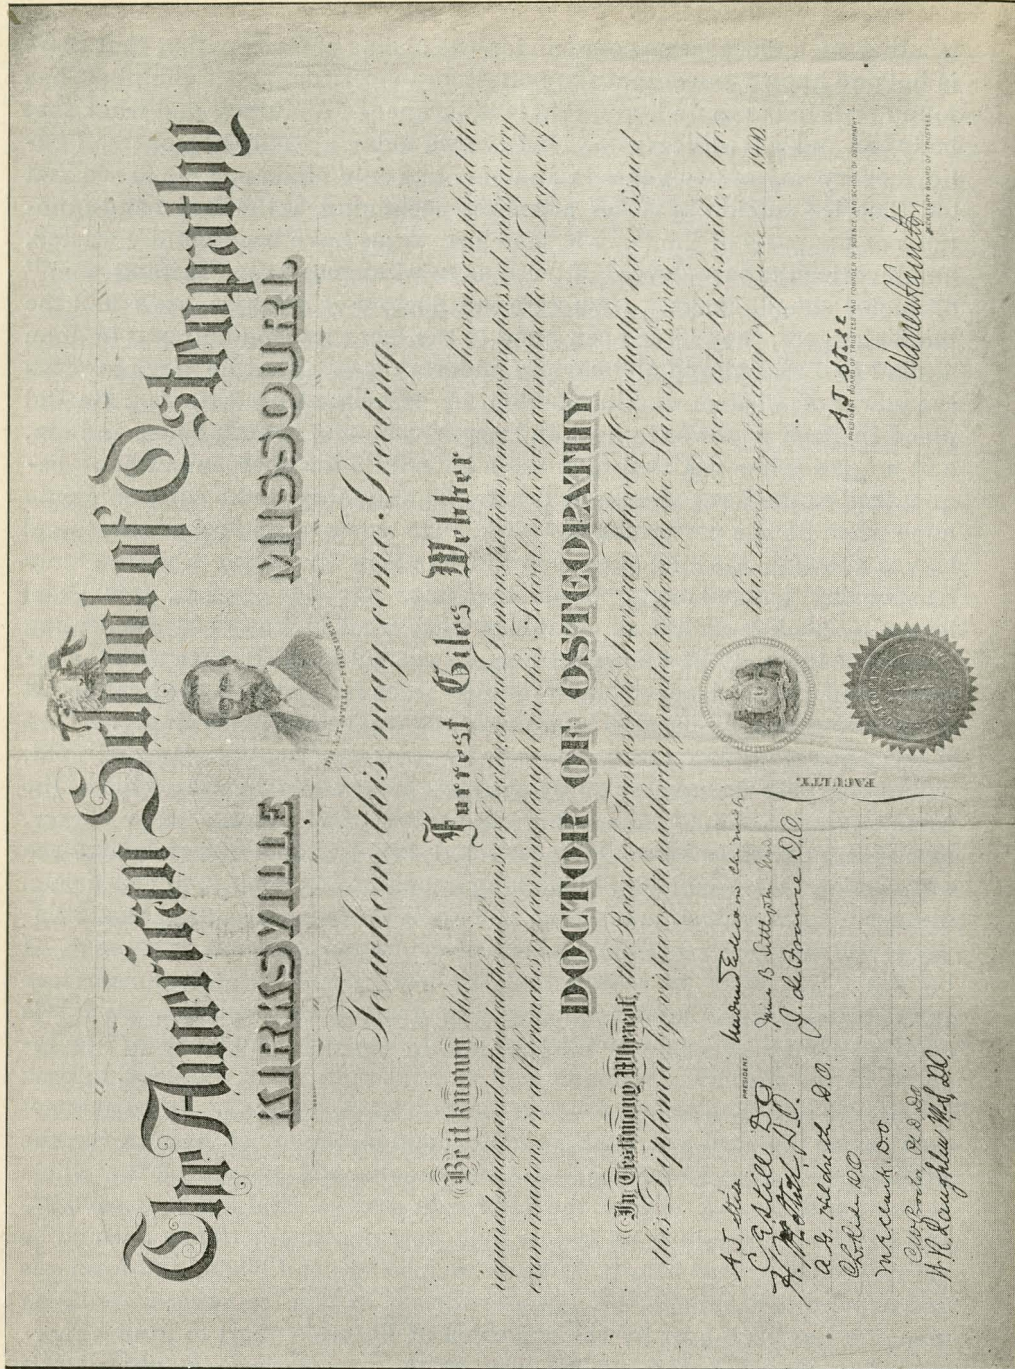 The American School of Osteopathy
KIRKSVILLE MISSOURI
DR. A.T. STILL, FOUNDER.
To whom this may come, Greeting:
Be it known that Forrest Giles Webber having completed the
required study and attended the full course of Lectures and Demonstrations, and having passed satisfactory
examinations in all branches of learning taught in this School, is hereby admitted to the Degree of
DOCTOR OF OSTEOPATHY
In Testimony Whereof, the Board of Trustees of the American School of Osteopathy have issued
this Diploma by virtue of the authority granted to them by the State of Missouri.
Given at Kirksville, Mo.
this twenty-eighth day of June 1900.
A.T. Still
PRESIDENT
C E Still D.O.
H. M. Still, D.O.
A. G. Hildreth D.O.
M E Clark, DO
W. R. Laughlin M.S., D.O.
FACULTY.
A.T. Still.
PRESIDENT BOARD OF TRUSTEES AND FOUNDER OF SCIENCE AND SCHOOL OF OSTEOPATHY
Warren Hamilton
SECRETARY BOARD OF TRUSTEES.